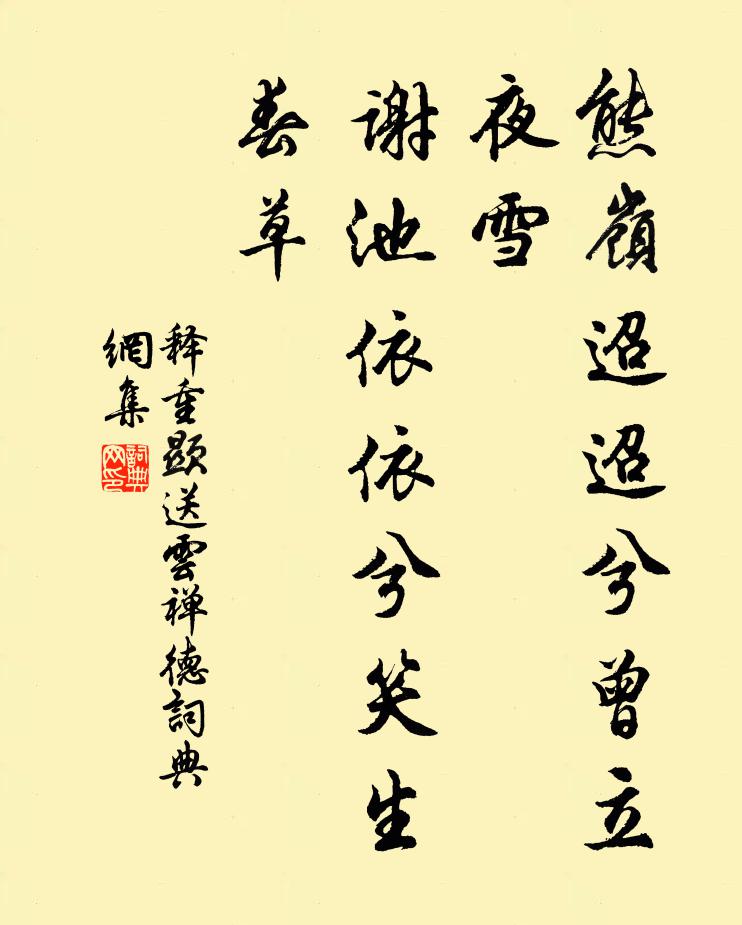 熊嶺迢迢兮曾立
夜雪
谢池依依兮笑生
春草
释重顯送雲禅德詞典
網集
詞典
网印